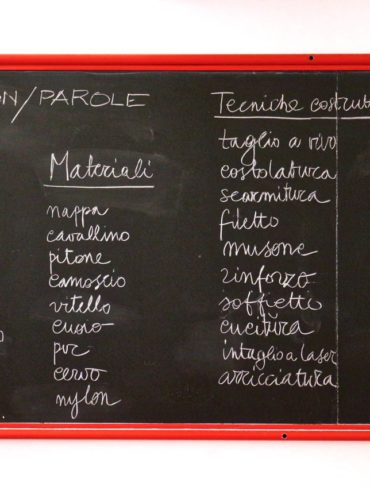 ON/PAROLE
Materiali
nappa
cavallino
pitone
camoscio
vitello
cuoio
pvc
cervo
nylon
Tecniche costrut
taglio a vivo
costolatura
scarnitura
filetto
musone
rinforzo
soffietti
cucitura
intaglio a laser
arricciatura